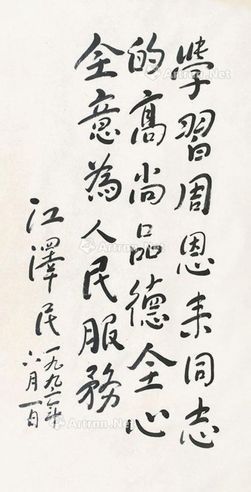 學習周恩来同志
的高尚品德全心
全意為人民服務
江澤民一九九一年
六月一日
Artron.Net
Artron.Net
Artron.Net
Artron.Net